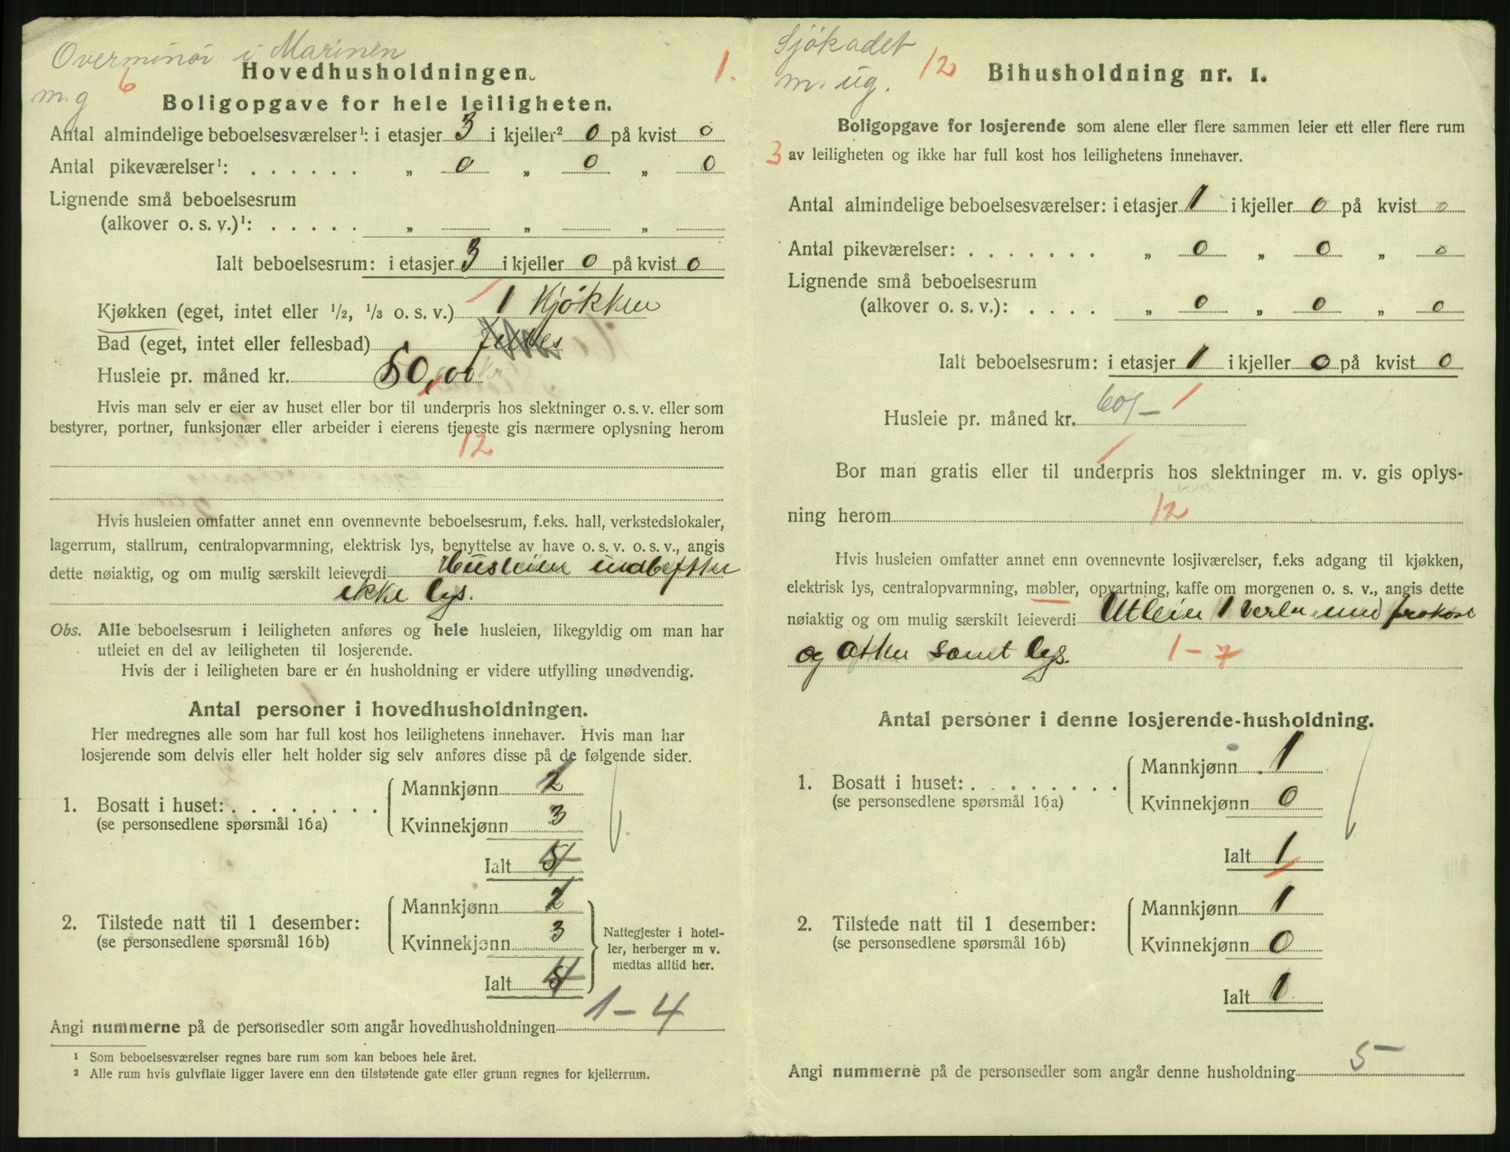 Overminør i Marinen
m.g 6 1.
Hovedhusholdningen.
Boligopgave for hele leiligheten.
Antal almindelige beboelsesværelser¹: i etasjer 3 i kjeller² 0 på kvist 0
Antal pikeværelser¹: . . . . . . „ 0 „ 0 „ 0
Lignende små beboelsesrum
(alkover o. s. v.)¹: . . . . . „ „ „
Ialt beboelsesrum: i etasjer 3 i kjeller 0 på kvist 0
Kjøkken (eget, intet eller ½, ⅓ o. s. v.) 1 Kjøkken
Bad (eget, intet eller fellesbad)
Husleie pr. måned kr. 50,00
Hvis man selv er eier av huset eller bor til underpris hos slektninger o. s. v. eller som
bestyrer, portner, funksjonær eller arbeider i eierens tjeneste gis nærmere oplysning herom
12
Hvis husleien omfatter annet enn ovennevnte beboelsesrum, f.eks. hall, verkstedslokaler,
lagerrum, stallrum, centralopvarmning, elektrisk lys, benyttelse av have o. s. v. o. s. v., angis
dette nøiaktig, og om mulig særskilt leieverdi Husleien indbefatter
ikke lys.
Obs. Alle beboelsesrum i leiligheten anføres og hele husleien, likegyldig om man har
utleiet en del av leiligheten til losjerende.
Hvis der i leiligheten bare er én husholdning er videre utfylling unødvendig.
Antal personer i hovedhusholdningen.
Her medregnes alle som har full kost hos leilighetens innehaver. Hvis man har
losjerende som delvis eller helt holder sig selv anføres disse på de følgende sider.
1. Bosatt i huset: . . . . . . . .
(se personsedlene spørsmål 16a)
Mannkjønn
Kvinnekjønn 3
Ialt 4
2. Tilstede natt til 1 desember:
(se personsedlene spørsmål 16b)
Mannkjønn
Kvinnekjønn 3
Ialt 4
Nattegjester i hotel-
ler, herberger m v.
medtas alltid her.
Angi nummerne på de personsedler som angår hovedhusholdningen 1-4
¹ Som beboelsesværelser regnes bare rum som kan beboes hele året.
² Alle rum hvis gulvflate ligger lavere enn den tilstøtende gate eller grunn regnes for kjellerrum.
Sjökadet
m. ug. 12
Bihusholdning nr. 1.
Boligopgave for losjerende som alene eller flere sammen leier ett eller flere rum
3 av leiligheten og ikke har full kost hos leilighetens innehaver.
Antal almindelige beboelsesværelser: i etasjer 1 i kjeller 0 på kvist 0
Antal pikeværelser: . . . . . . . „ 0 „ 0 „ 0
Lignende små beboelsesrum
(alkover o. s. v.): . . . . „ 0 „ 0 „ 0
Ialt beboelsesrum: i etasjer 1 i kjeller 0 på kvist 0
Husleie pr. måned kr. 60,- 1
Bor man gratis eller til underpris hos slektninger m. v. gis oplys-
ning herom 12
Hvis husleien omfatter annet enn ovennevnte losjiværelser, f.eks adgang til kjøkken,
elektrisk lys, centralopvarmning, møbler, opvartning, kaffe om morgenen o. s. v., angis dette
nøiaktig og om mulig særskilt leieverdi Utleier 1 Verlse med frokost
og aften samt lys. 1 - 7
Antal personer i denne losjerende-husholdning.
1. Bosatt i huset: . . . . . . . .
(se personsedlene spørsmål 16a)
Mannkjønn 1
Kvinnekjønn 0
Ialt 1
2. Tilstede natt til 1 desember:
(se personsedlene spørsmål 16b)
Mannkjønn 1
Kvinnekjønn 0
Ialt 1
Angi nummerne på de personsedler som angår denne husholdning 5